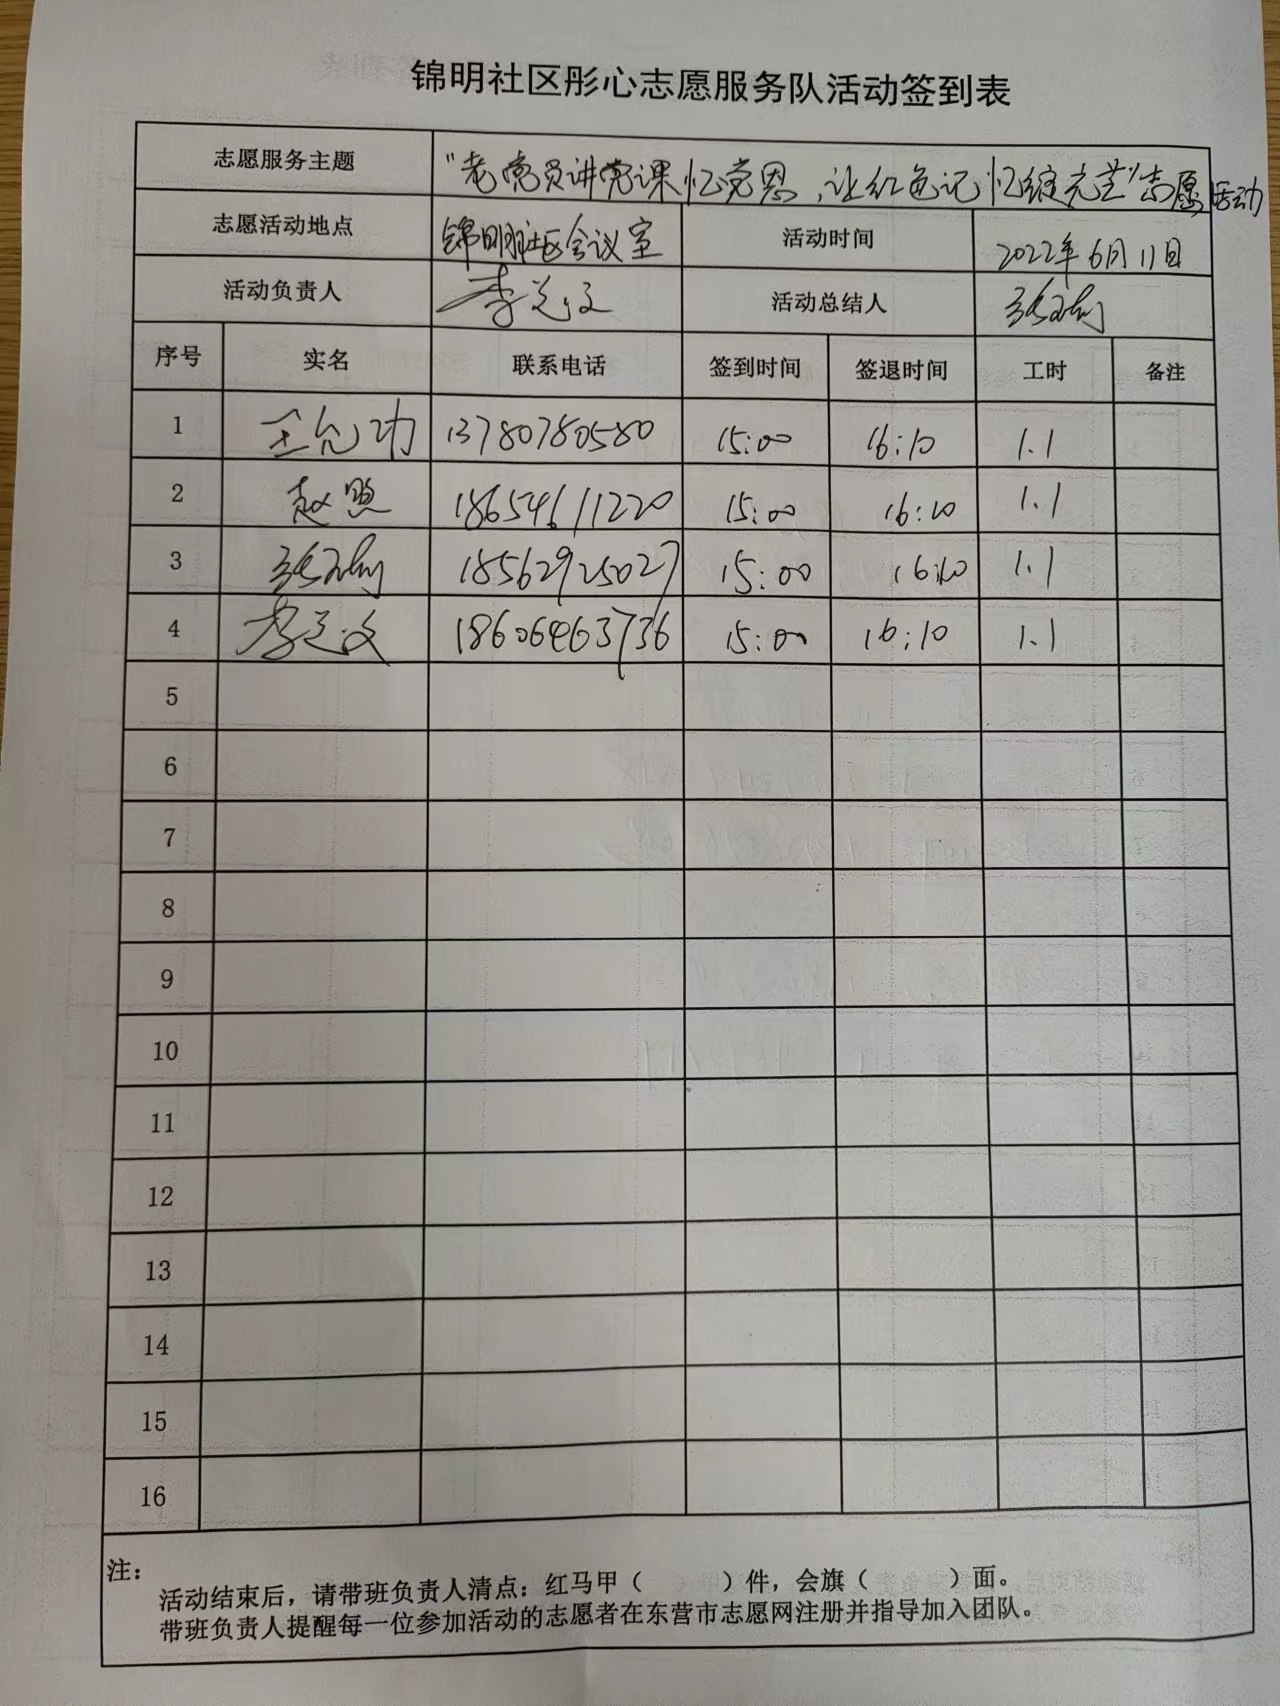 锦明社区彤心志愿服务队活动签到表
志愿服务主题 "老党员讲党课忆党恩,让红色记忆绽光芒"志愿活动
志愿活动地点 锦明社区会议室 活动时间 2022年6月11日
活动负责人 李文 活动总结人
序号 实名 联系电话 签到时间 签退时间 工时 备注
1 王允功 13780780580 15:00 16:10 1.1
2 赵照 18654611220 15:00 16:10 1.1
3 18562925027 15:00 16:10 1.1
4 李文 18606463736 15:00 16:10 1.1
5
6
7
8
9
10
11
12
13
14
15
16
注:
活动结束后,请带班负责人清点:红马甲( )件,会旗( )面。
带班负责人提醒每一位参加活动的志愿者在东营市志愿网注册并指导加入团队。